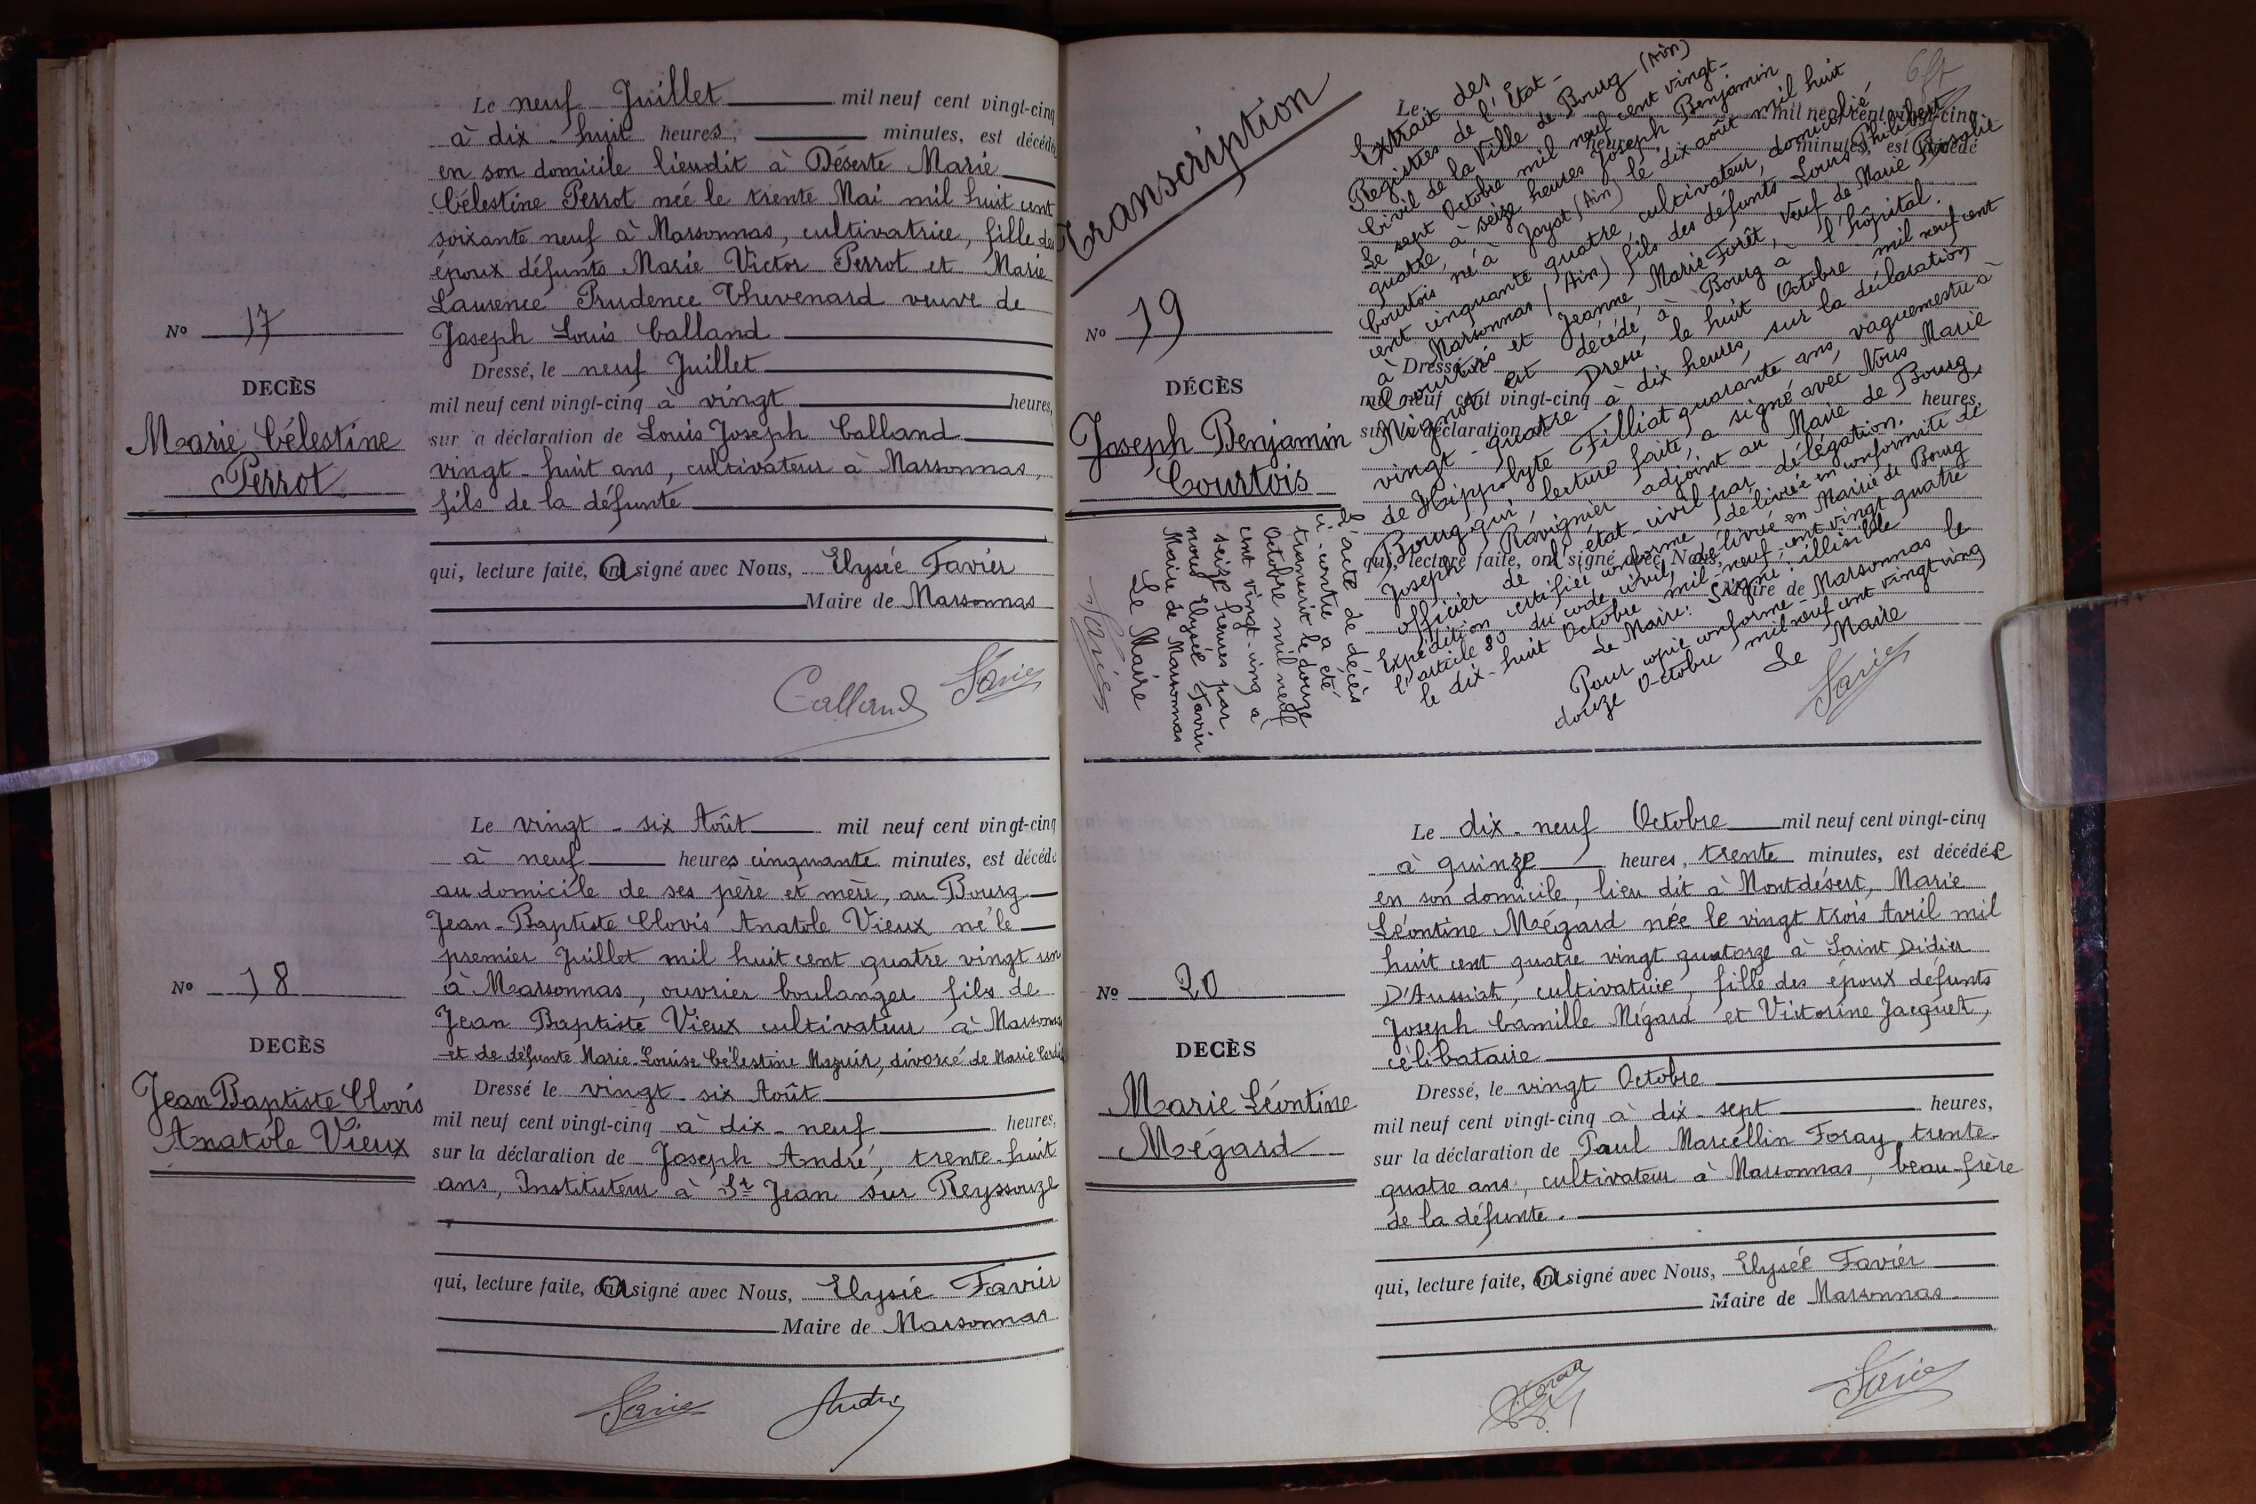 Le neuf Juillet mil neuf cent vingt-cinq
à dix-huit heures, minutes, est décédé
en son domicile lieudit à Déserte Marie
Célestine Perrot née le trente Mai mil huit cent
soixante neuf à Marsonnas, cultivatrice, fille des
époux défunts Marie Victor Perrot et Marie
Laurence Prudence Thevenard veuve de
Joseph Louis Calland
Dressé, le neuf Juillet
mil neuf cent vingt-cinq à vingt heures,
sur la déclaration de Louis Joseph Calland
vingt-huit ans, cultivateur à Marsonnas,
fils de la défunte
qui, lecture faite, a signé avec Nous, Elysée Favier
Maire de Marsonnas
Calland Favier
No 17
DECÈS
Marie Célestine
Perrot
Le vingt-six Août mil neuf cent vingt-cinq
à neuf heures cinquante minutes, est décédé
au domicile de ses père et mère, au Bourg
Jean-Baptiste Clovis Anatole Vieux né le
premier Juillet mil huit cent quatre vingt un
à Marsonnas, ouvrier boulanger fils de
Jean Baptiste Vieux cultivateur à Marsonnas
et de défunte Marie-Louise Célestine Mazuir, divorcé de Marie
Dressé le vingt-six Août
mil neuf cent vingt-cinq à dix-neuf heures,
sur la déclaration de Joseph André, trente-huit
ans, Instituteur à St Jean sur Reyssouze
qui, lecture faite, a signé avec Nous, Elysée Favier
Maire de Marsonnas
Favier André
No 18
DECÈS
Jean Baptiste Clovis
Anatole Vieux
Transcription
No 19
DÉCÈS
Joseph Benjamin
Courtois
Le mil neuf cent vingt-cinq
heures minutes, est décédé
Dressé
mil neuf cent vingt-cinq heures,
sur la déclaration de
qui, lecture faite, ont signé avec Nous,
Maire de
Extrait des
Registres de l'Etat-
Civil de la Ville de Bourg (Ain)
Le sept Octobre mil neuf cent vingt-
quatre, à seize heures Joseph Benjamin
Courtois né à Jayat (Ain) le dix août mil huit
cent cinquante quatre, cultivateur, domicilié
à Marsonnas (Ain) fils des défunts Louis Philibert
Courtois et Jeanne, Marie Forêt, veuf de Marie Rosalie
Mignot est décédé à Bourg à l'hôpital.
Dressé, le huit Octobre mil neuf cent
vingt-quatre à dix heures, sur la déclaration
de Hippolyte Filliat quarante ans, vaguemestre à
Bourg qui, lecture faite, a signé avec Nous Marie
Joseph Ravignier adjoint au Maire de Bourg,
officier de l'état-civil par délégation.
Expédition certifiée conforme délivrée en conformité de
l'article 80 du code civil, délivré en Mairie de Bourg
le dix-huit Octobre mil-neuf-cent vingt quatre
Le Maire: Signé: illisible
Pour copie conforme Marsonnas le
douze Octobre mil neuf cent vingt cinq
Le Maire
Favier
L'acte de décès
ci-contre a été
transcrit le douze
Octobre mil neuf
cent vingt-cinq à
seize heures par
nous Elysée Favier
Maire de Marsonnas
Le Maire
Favier
Le dix-neuf Octobre mil neuf cent vingt-cinq
à quinze heures, trente minutes, est décédée
en son domicile, lieu dit à Montdésert, Marie
Léontine Mégard née le vingt trois Avril mil
huit cent quatre vingt quatorze à Saint Didier
D'Aussiat, cultivatrice, fille des époux défunts
Joseph Camille Mégard et Victorine Jacquet,
célibataire
Dressé, le vingt Octobre
mil neuf cent vingt-cinq à dix-sept heures,
sur la déclaration de Paul Marcellin Foray trente-
quatre ans, cultivateur à Marsonnas, beau-frère
de la défunte.
qui, lecture faite, a signé avec Nous, Elysée Favier
Maire de Marsonnas
Favier
No 20
DECÈS
Marie Léontine
Mégard